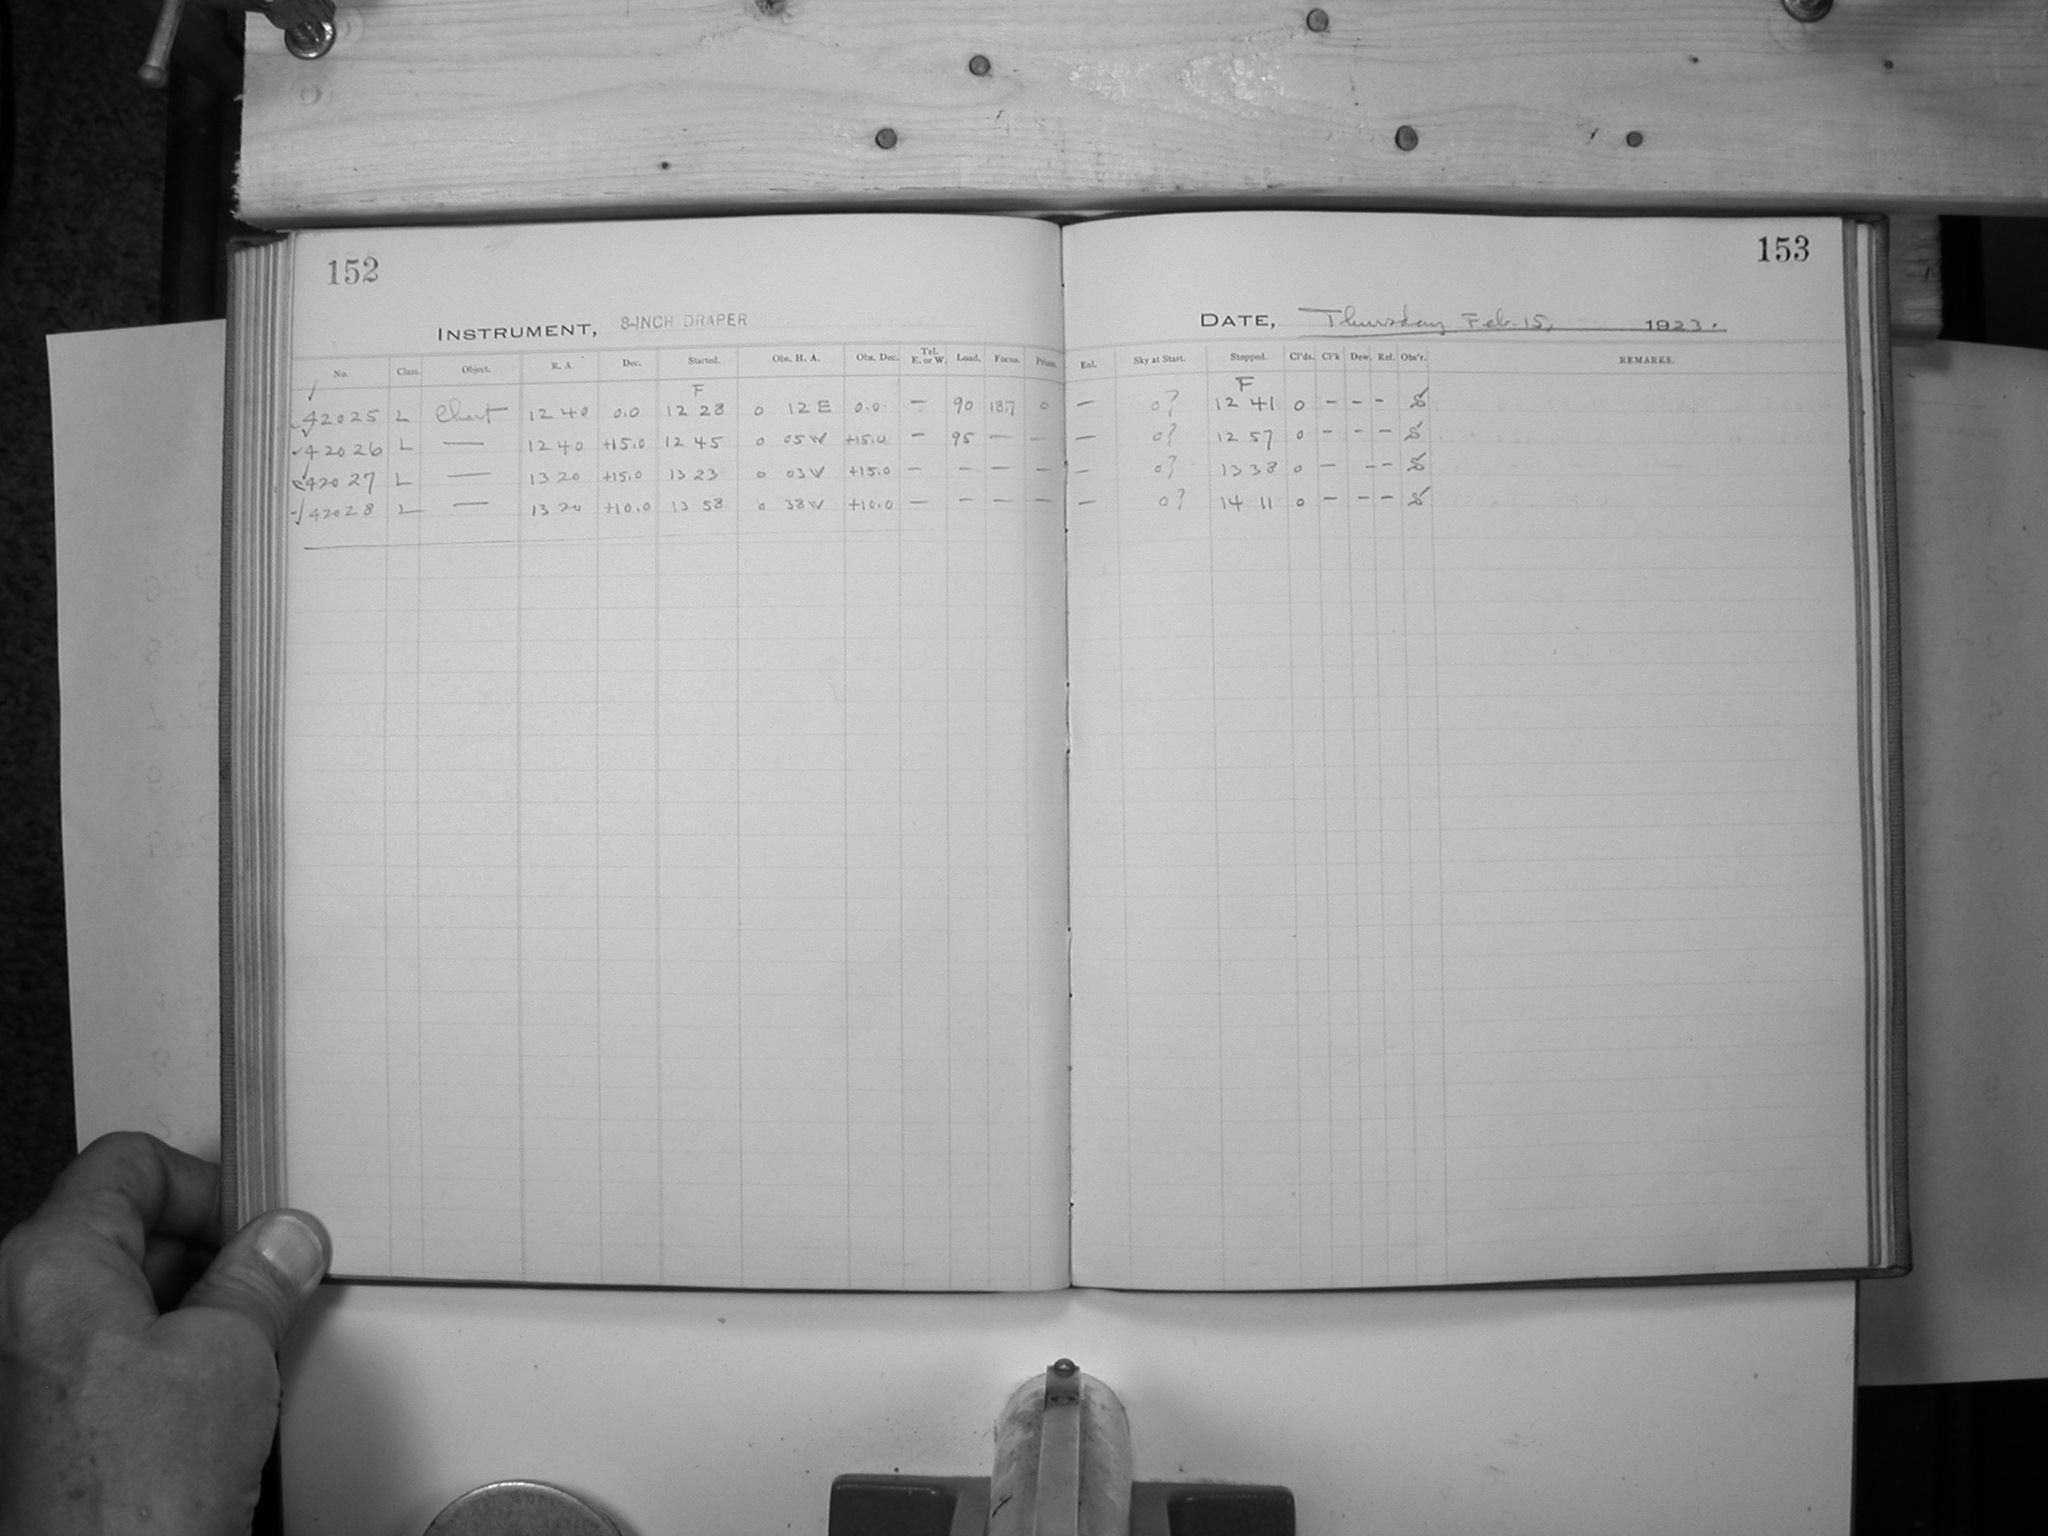 152
INSTRUMENT, 8-INCH DRAPER
No. Class. Object. R. A. Dec. Started. Obs. H. A. Obs. Dec. Tel. E. or W. Load. Focus. Prisms.
F
42025 L Chart 12 40 0.0 12 28 0 12 E 0.0 — 90 18.7 0
42026 L — 12 40 +15.0 12 45 0 05 W +15.0 — 95 — —
42027 L — 13 20 +15.0 13 23 0 03 W +15.0 — — — —
42028 L — 13 20 +10.0 13 58 0 38 W +10.0 — — — —
153
DATE, Thursday Feb. 15, 1923.
Exl. Sky at Start. Stopped. Cl'ds. Cl'k Dew. Ref. Obs'r. REMARKS.
F
— 0? 12 41 0 — — —
— 0? 12 57 0 — — —
— 0? 13 38 0 — — —
— 0? 14 11 0 — — —